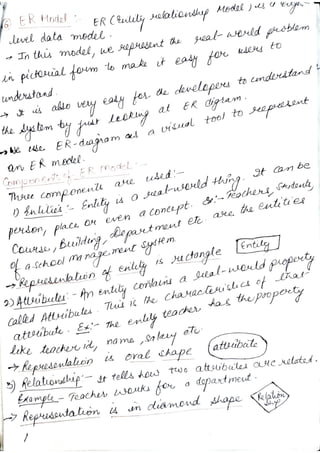 ER Model :- ER (Entity relationship Model) is a high-
level data model.
→ In this model, we represent the real-world problem
in pictorial form to make it easy for users to
understand.
→ It is also very easy for the developers to understand
the system by just looking at ER digram.
→ We use ER-diagram as a visual tool to represent
an ER model.
Components of ER Model :-
Three components are used :-
1) Entities :- Entity is a real-world thing. It can be
person, place or even a concept. Ex:- Teachers, Students,
Course, Building, Department etc are the entities
of a school management system.
→ Representation of entity is rectangle Entity
2) Attributes :- An entity contains a real-world property
called Attributes. This is the characteristics of that
attribute. Ex:- The entity teacher has the property
like teacher id, name, salary etc.
→ Representation is oval shape attribute
3) Relationship :- It tells how two attributes are related.
Example - Teacher works for a department.
→ Representation is in diamond shape Relation
ship